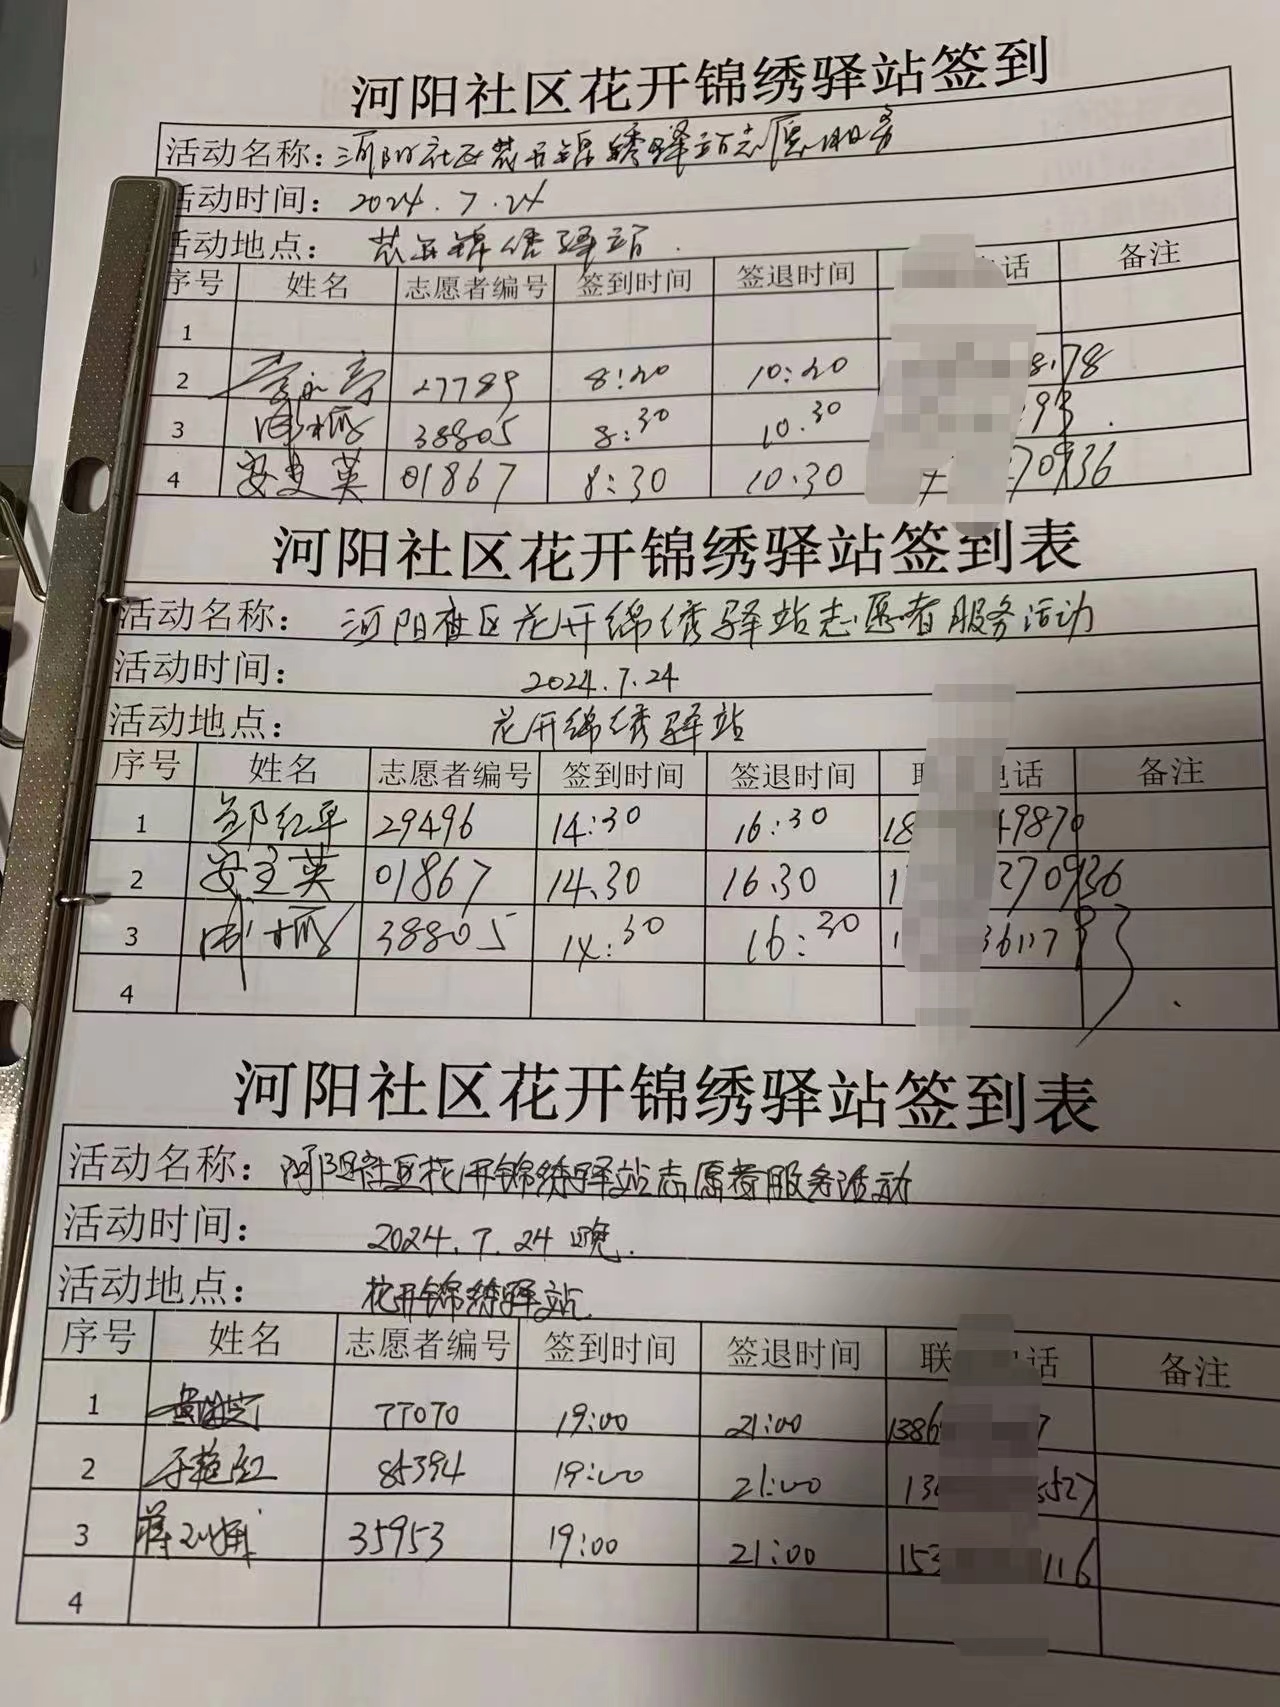 河阳社区花开锦绣驿站签到
活动名称：河阳社区花开锦绣驿站志愿服务
活动时间：2024.7.24
活动地点：花开锦绣驿站.
序号 姓名 志愿者编号 签到时间 签退时间 话 备注
1
2 27789 8:20 10:20 8178
3 38805 8:30 10.30 93.
4 安主英 01867 8:30 10.30 70936
河阳社区花开锦绣驿站签到表
活动名称：河阳社区花开锦绣驿站志愿者服务活动
活动时间：2024.7.24
活动地点：花开锦绣驿站
序号 姓名 志愿者编号 签到时间 签退时间 联 电话 备注
1 邹红平 29496 14:30 16:30 18 49870
2 安主英 01867 14.30 16.30 1 270936
3 38805 14:30 16:30 1 361793
4
河阳社区花开锦绣驿站签到表
活动名称：河阳社区花开锦绣驿站志愿者服务活动
活动时间：2024.7.24晚.
活动地点：花开锦绣驿站.
序号 姓名 志愿者编号 签到时间 签退时间 联 话 备注
1 77070 19:00 21:00 1386 7
2 于艳红 85394 19:00 21:00 13 5527
3 35953 19:00 21:00 153 116
4